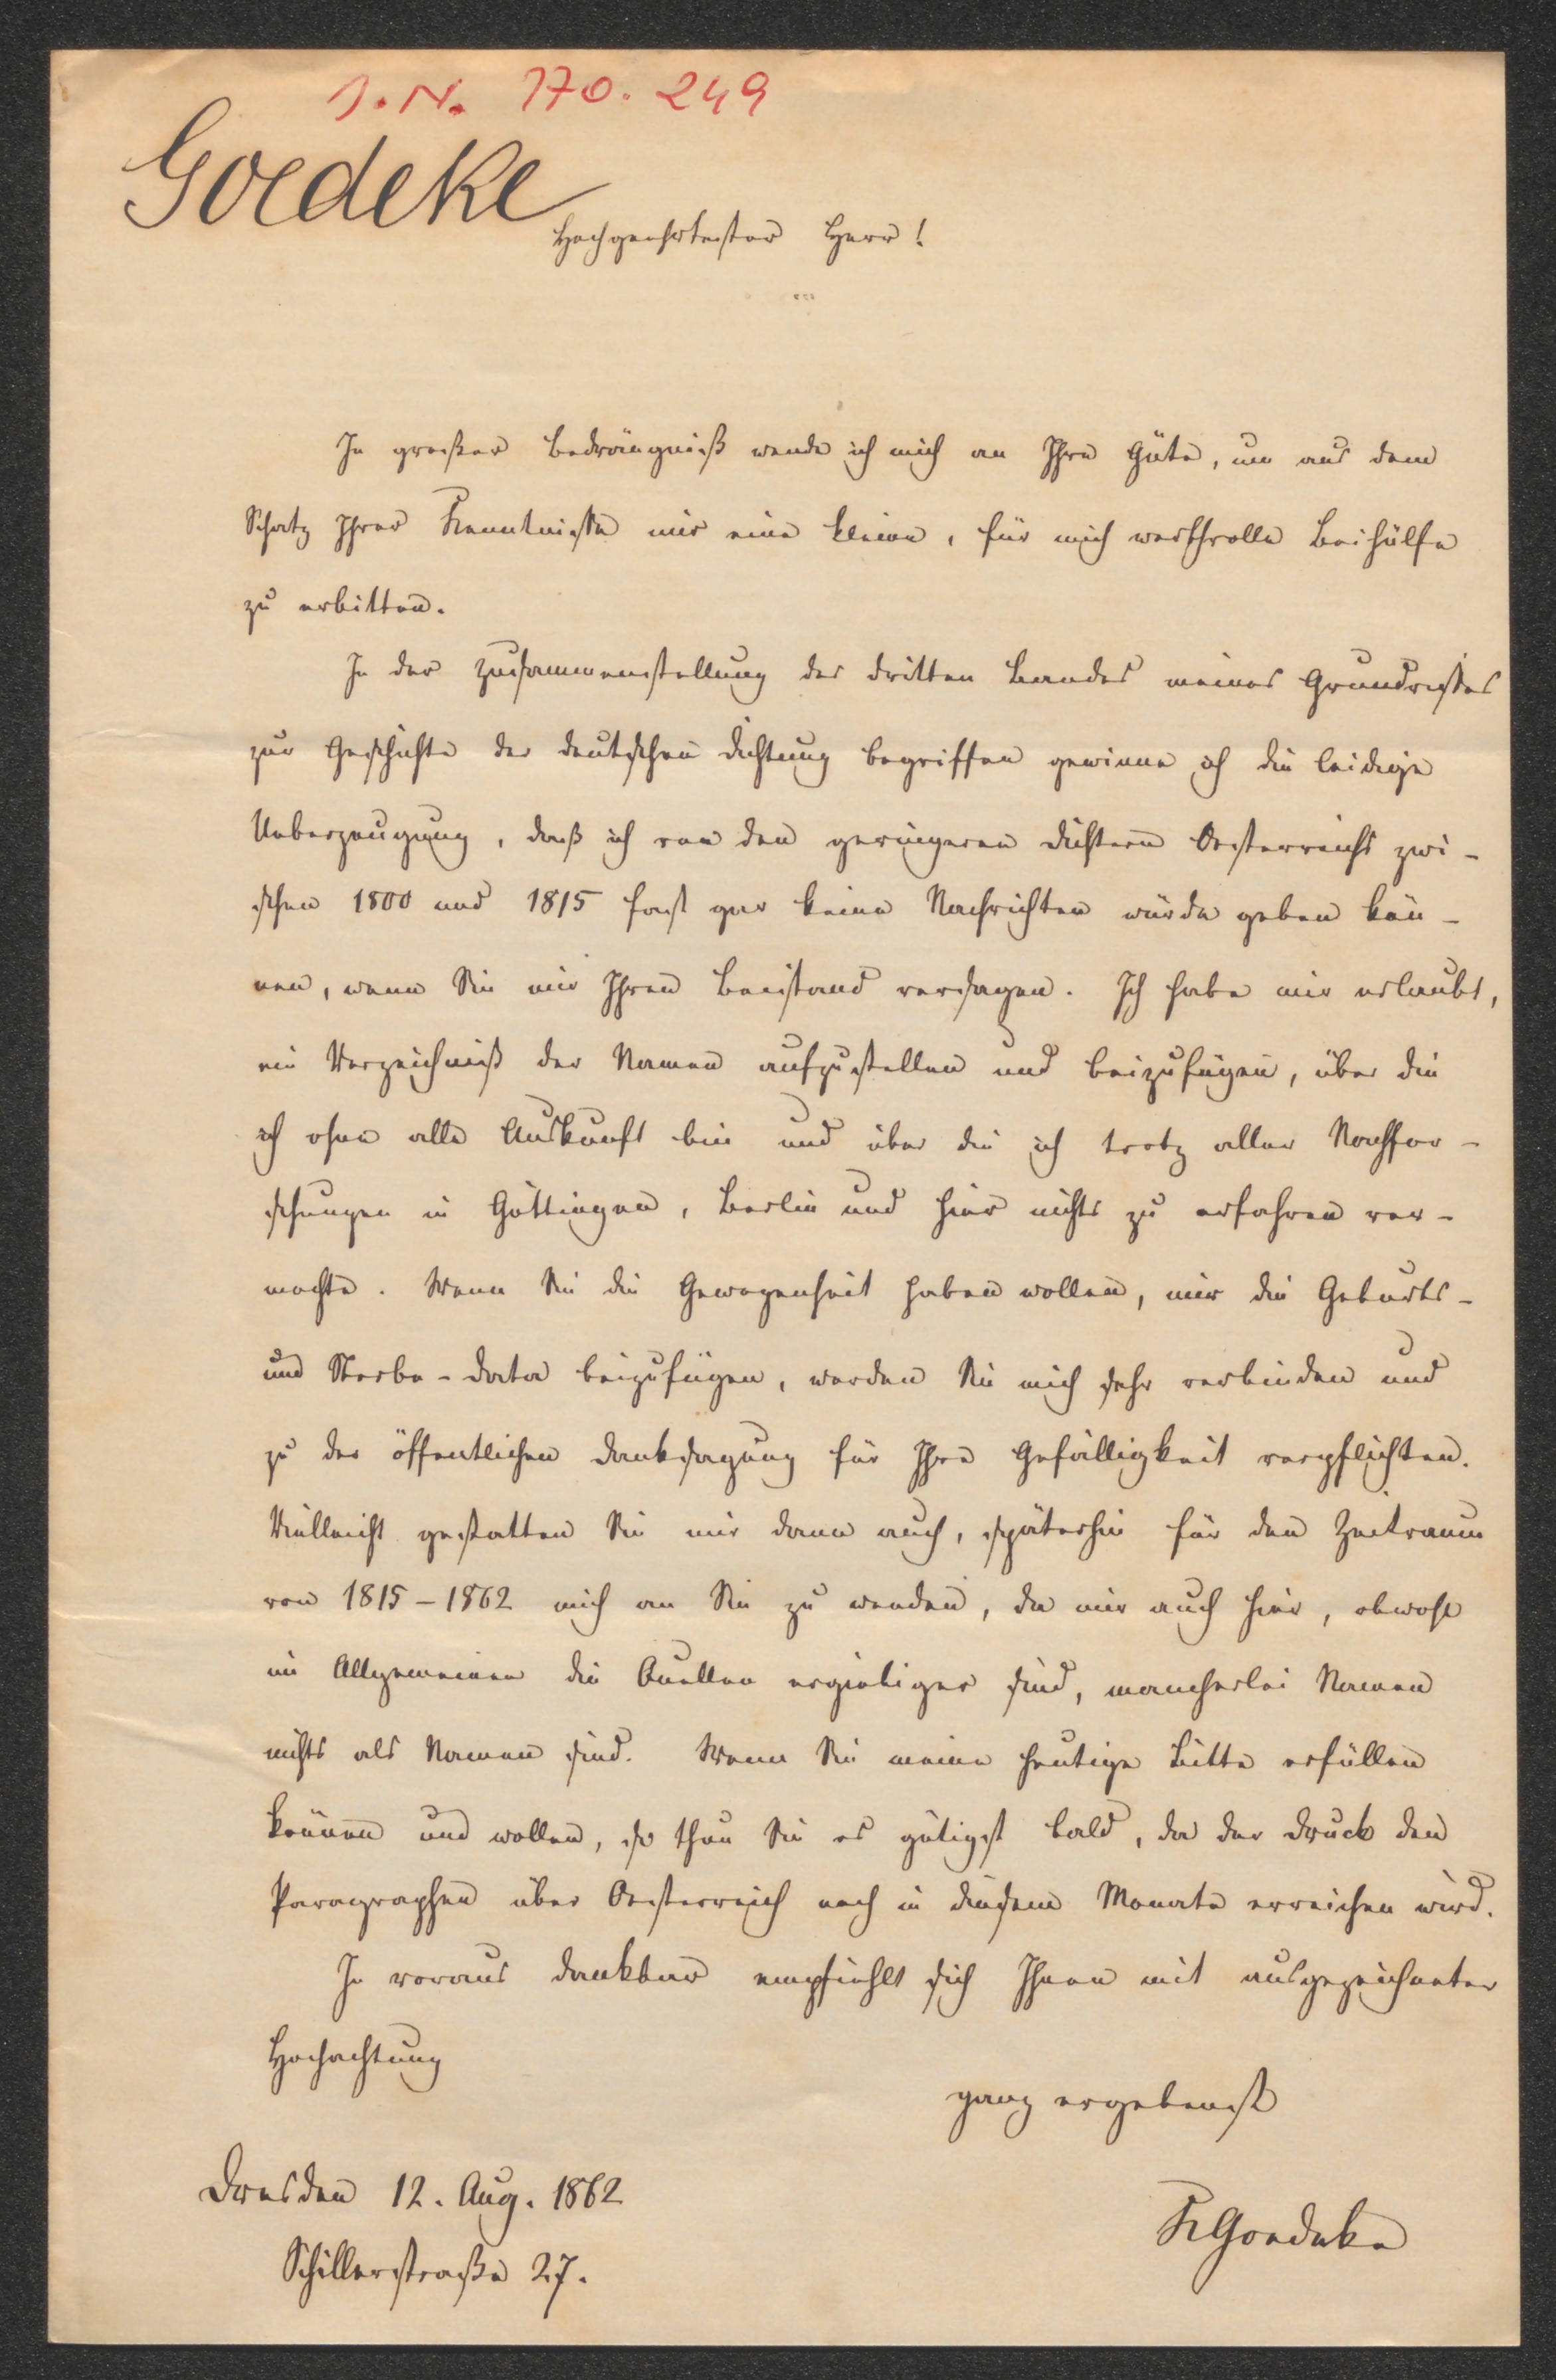 J. N. 170.249
Goedeke
Hochgeehrtester Herr!
In großer Bedrängniß wende ich mich an Ihre Güte, um aus dem
Schatz Ihrer Kenntnisse mir eine kleine, für mich werthvolle Beihülfe
zu erbitten.
In der Zusammenstellung des dritten Bandes meines Grundrisses
zur Geschichte der deutschen Dichtung begriffen gewinne ich die leidige
Ueberzeugung, daß ich von den geringeren Dichtern Oesterreichs zwi-
schen 1800 und 1815 fast gar keine Nachrichten würde geben kön-
nen, wenn Sie mir Ihren Beistand versagen. Ich habe mir erlaubt,
ein Verzeichniß der Namen aufzustellen und beizufügen, über die
ich ohne alle Auskunft bin und über die ich trotz aller Nachfor-
schungen in Göttingen, Berlin und hier nichts zu erfahren ver-
mochte. Wenn Sie die Gewogenheit haben wollen, mir die Geburts-
und Sterbe-Data beizufügen, werden Sie mich sehr verbinden und
zu der öffentlichen Danksagung für Ihre Gefälligkeit verpflichten.
Vielleicht gestatten Sie mir dann auch, späterhin für den Zeitraum
von 1815-1862 mich an Sie zu wenden, da mir auch hier, obwohl
im Allgemeinen die Quellen ergiebiger sind, mancherlei Namen
nichts als Namen sind. Wenn Sie meine heutige Bitte erfüllen
können und wollen, so thun Sie es gütigst bald, da der Druck den
Paragraphen über Oesterreich noch in diesem Monate erreichen wird.
Im voraus dankbar empfiehlt sich Ihnen mit ausgezeichneter
Hochachtung
ganz ergebenst
Dresden 12. Aug. 1862
KGoedeke
Schillerstraße 27.